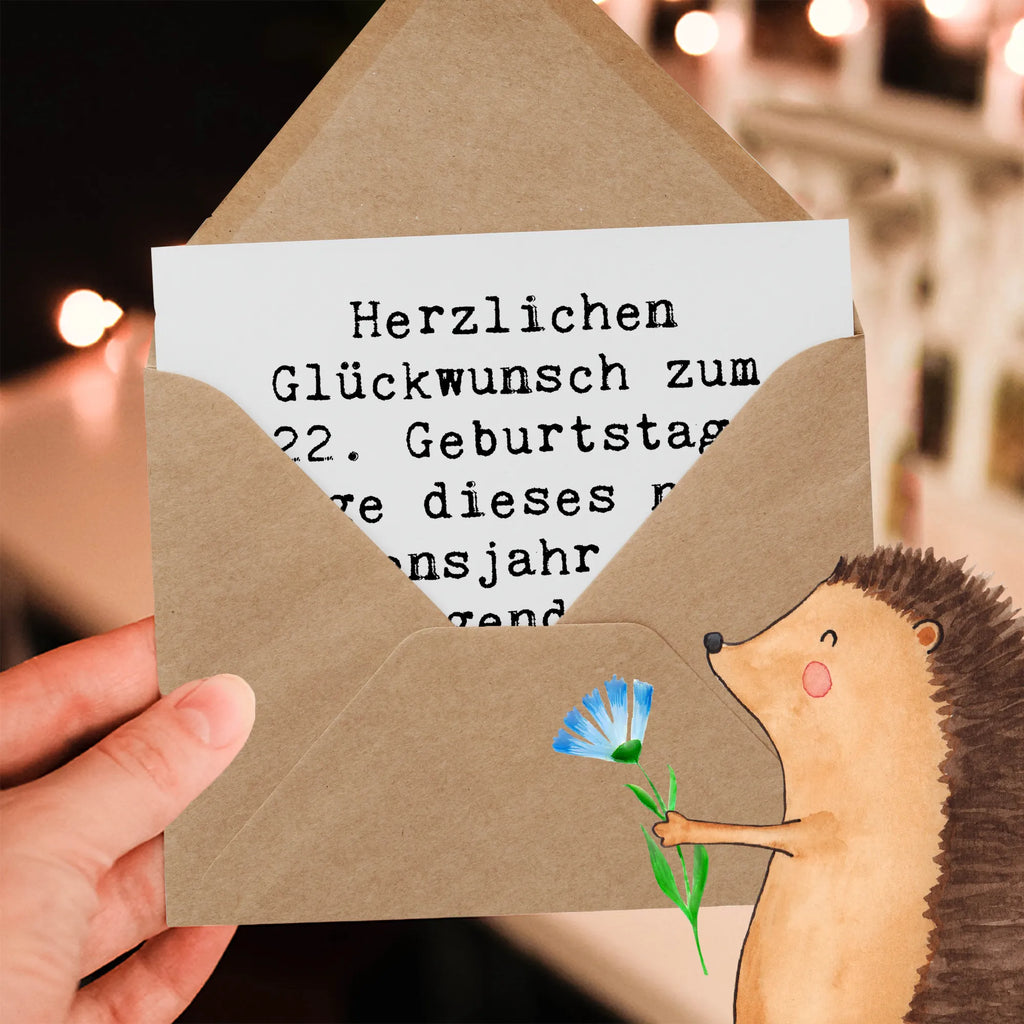 Herzlichen
Glückwunsch zum
22. Geburtstag
ge dieses
ensjahr
gend